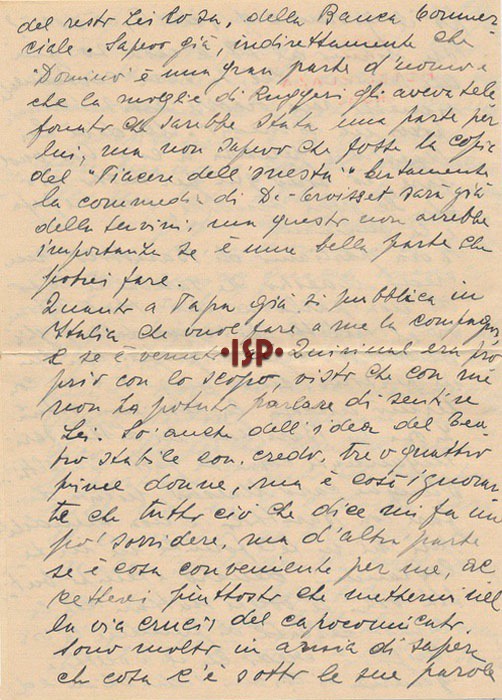 del resto lei lo sa, della Banca Commer
ciale. Sapevo già, indirettamente che
"Domino" è una gran parte d'uomo e
che la moglie di Ruggeri gli aveva tele
fonato che sarebbe stata una parte per
lui, ma non sapevo che fosse la copia
del "Piacere dell'onestà". Certamente
la commedia di De-Croisset sarà già
della Servini, ma questo non avrebbe
importanza se è una bella parte che
potrei fare.
Quanto a Papa già si pubblica in
Italia che vuol fare a me la compagn
E se è venuto Quirinal era pro
prio con lo scopo, visto che con me
non ha potuto parlare di sentire
Lei. So anche dell'idea del Tea
tro stabile con, credo, tre o quattro
prime donne, ma è così ignoran
te che tutto ciò che dice mi fa un
po' sorridere, ma d'altra parte
se è cosa conveniente per me, ac
cetterei piuttosto che mettermi nel
la via crucis del capocomicato.
Sono molto in ansia di sapere
che cosa c'è sotto le sue parole
•ISP•